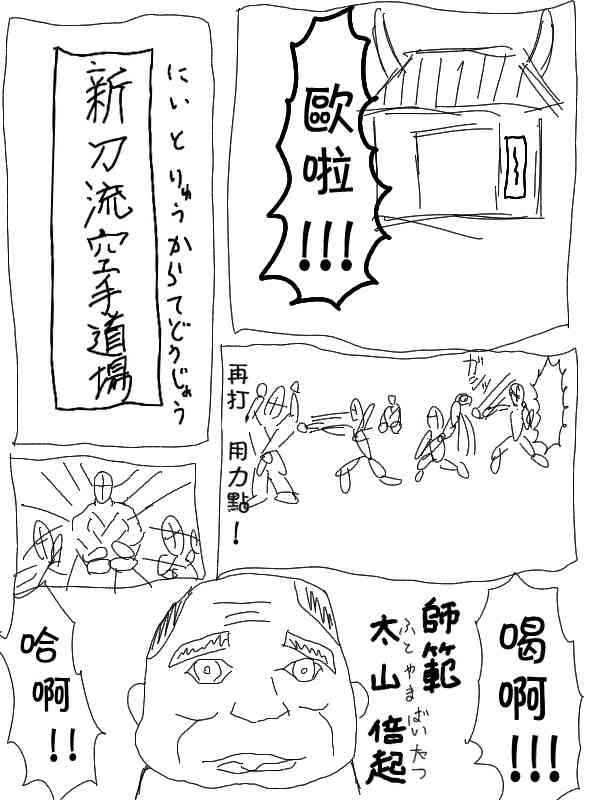 歐啦!!!
新刀流空手道場
にいとりゅうからてどうじょう
ガッ
再打 用力點!
喝啊!!!
師範
太山 倍起
ふとやま ばいたつ
哈啊!!